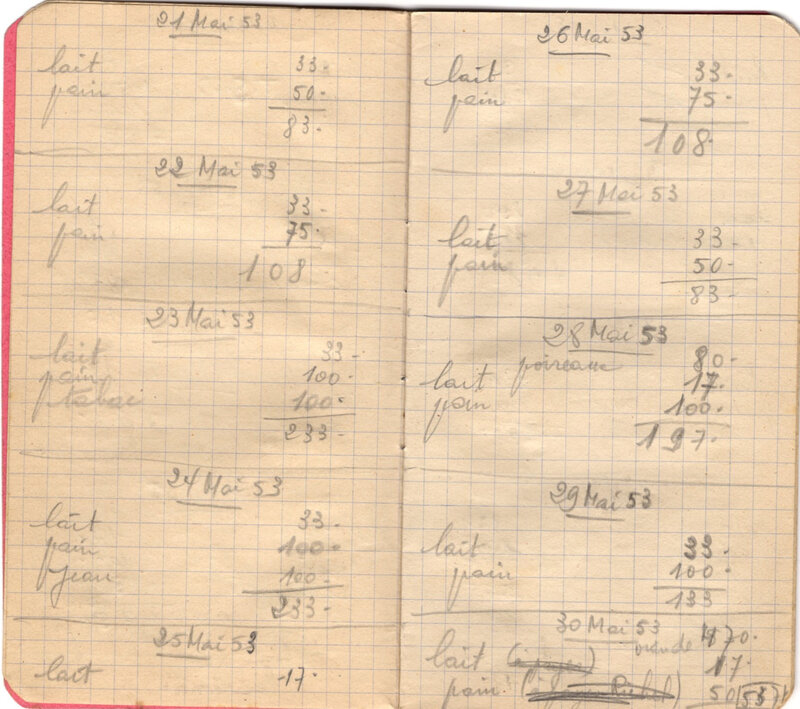 21 Mai 53
lait 33.
pain 50.
83.
22 Mai 53
lait 33-
pain 75.
108
23 Mai 53
lait 33-
pain 100.
tabac 100.
233-
24 Mai 53
lait 33-
pain 100-
Jean 100-
233-
25 Mai 53
lait -17.
26 Mai 53
lait 33.
pain 75.
108.
27 Mai 53
lait 33-
pain 50-
83-
28 Mai 53
poireaux 80-
lait 17.
pain 100.
197.
29 Mai 53
lait 33.
pain 100-
133
30 Mai 53
viande 470.
lait 17.
pain 50